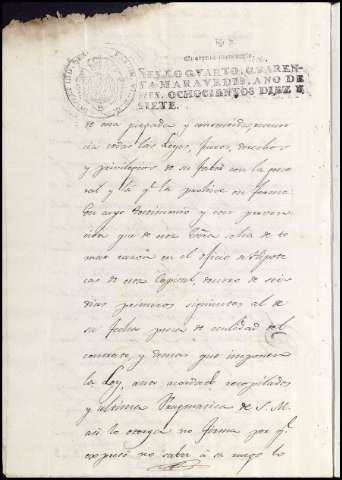 SELLO QVARTO, QVAREN-
TA MARAVEDIS, AÑO DE
MIL OCHOCIENTOS DIEZ Y
SIETE.
de esta y renun
cia todas las Leyes, fueros, derechos
y privilegios de su fabor con la gene
ral y la qe. la prohive en forma.
En cuyo testimonio y con preven
cion que de esta se ha de to
mar razon en el oficio de Hipote
cas de esta Capital, dentro de seis
dias primeros siguientes al de
su fecha pena de nulidad del
contrato, y demas que impone
la Ley, auto acordado recopilados
y ultima Pragmatica de S. M.
asi lo otorga no firma por qe.
expresó no saber à su ruego lo